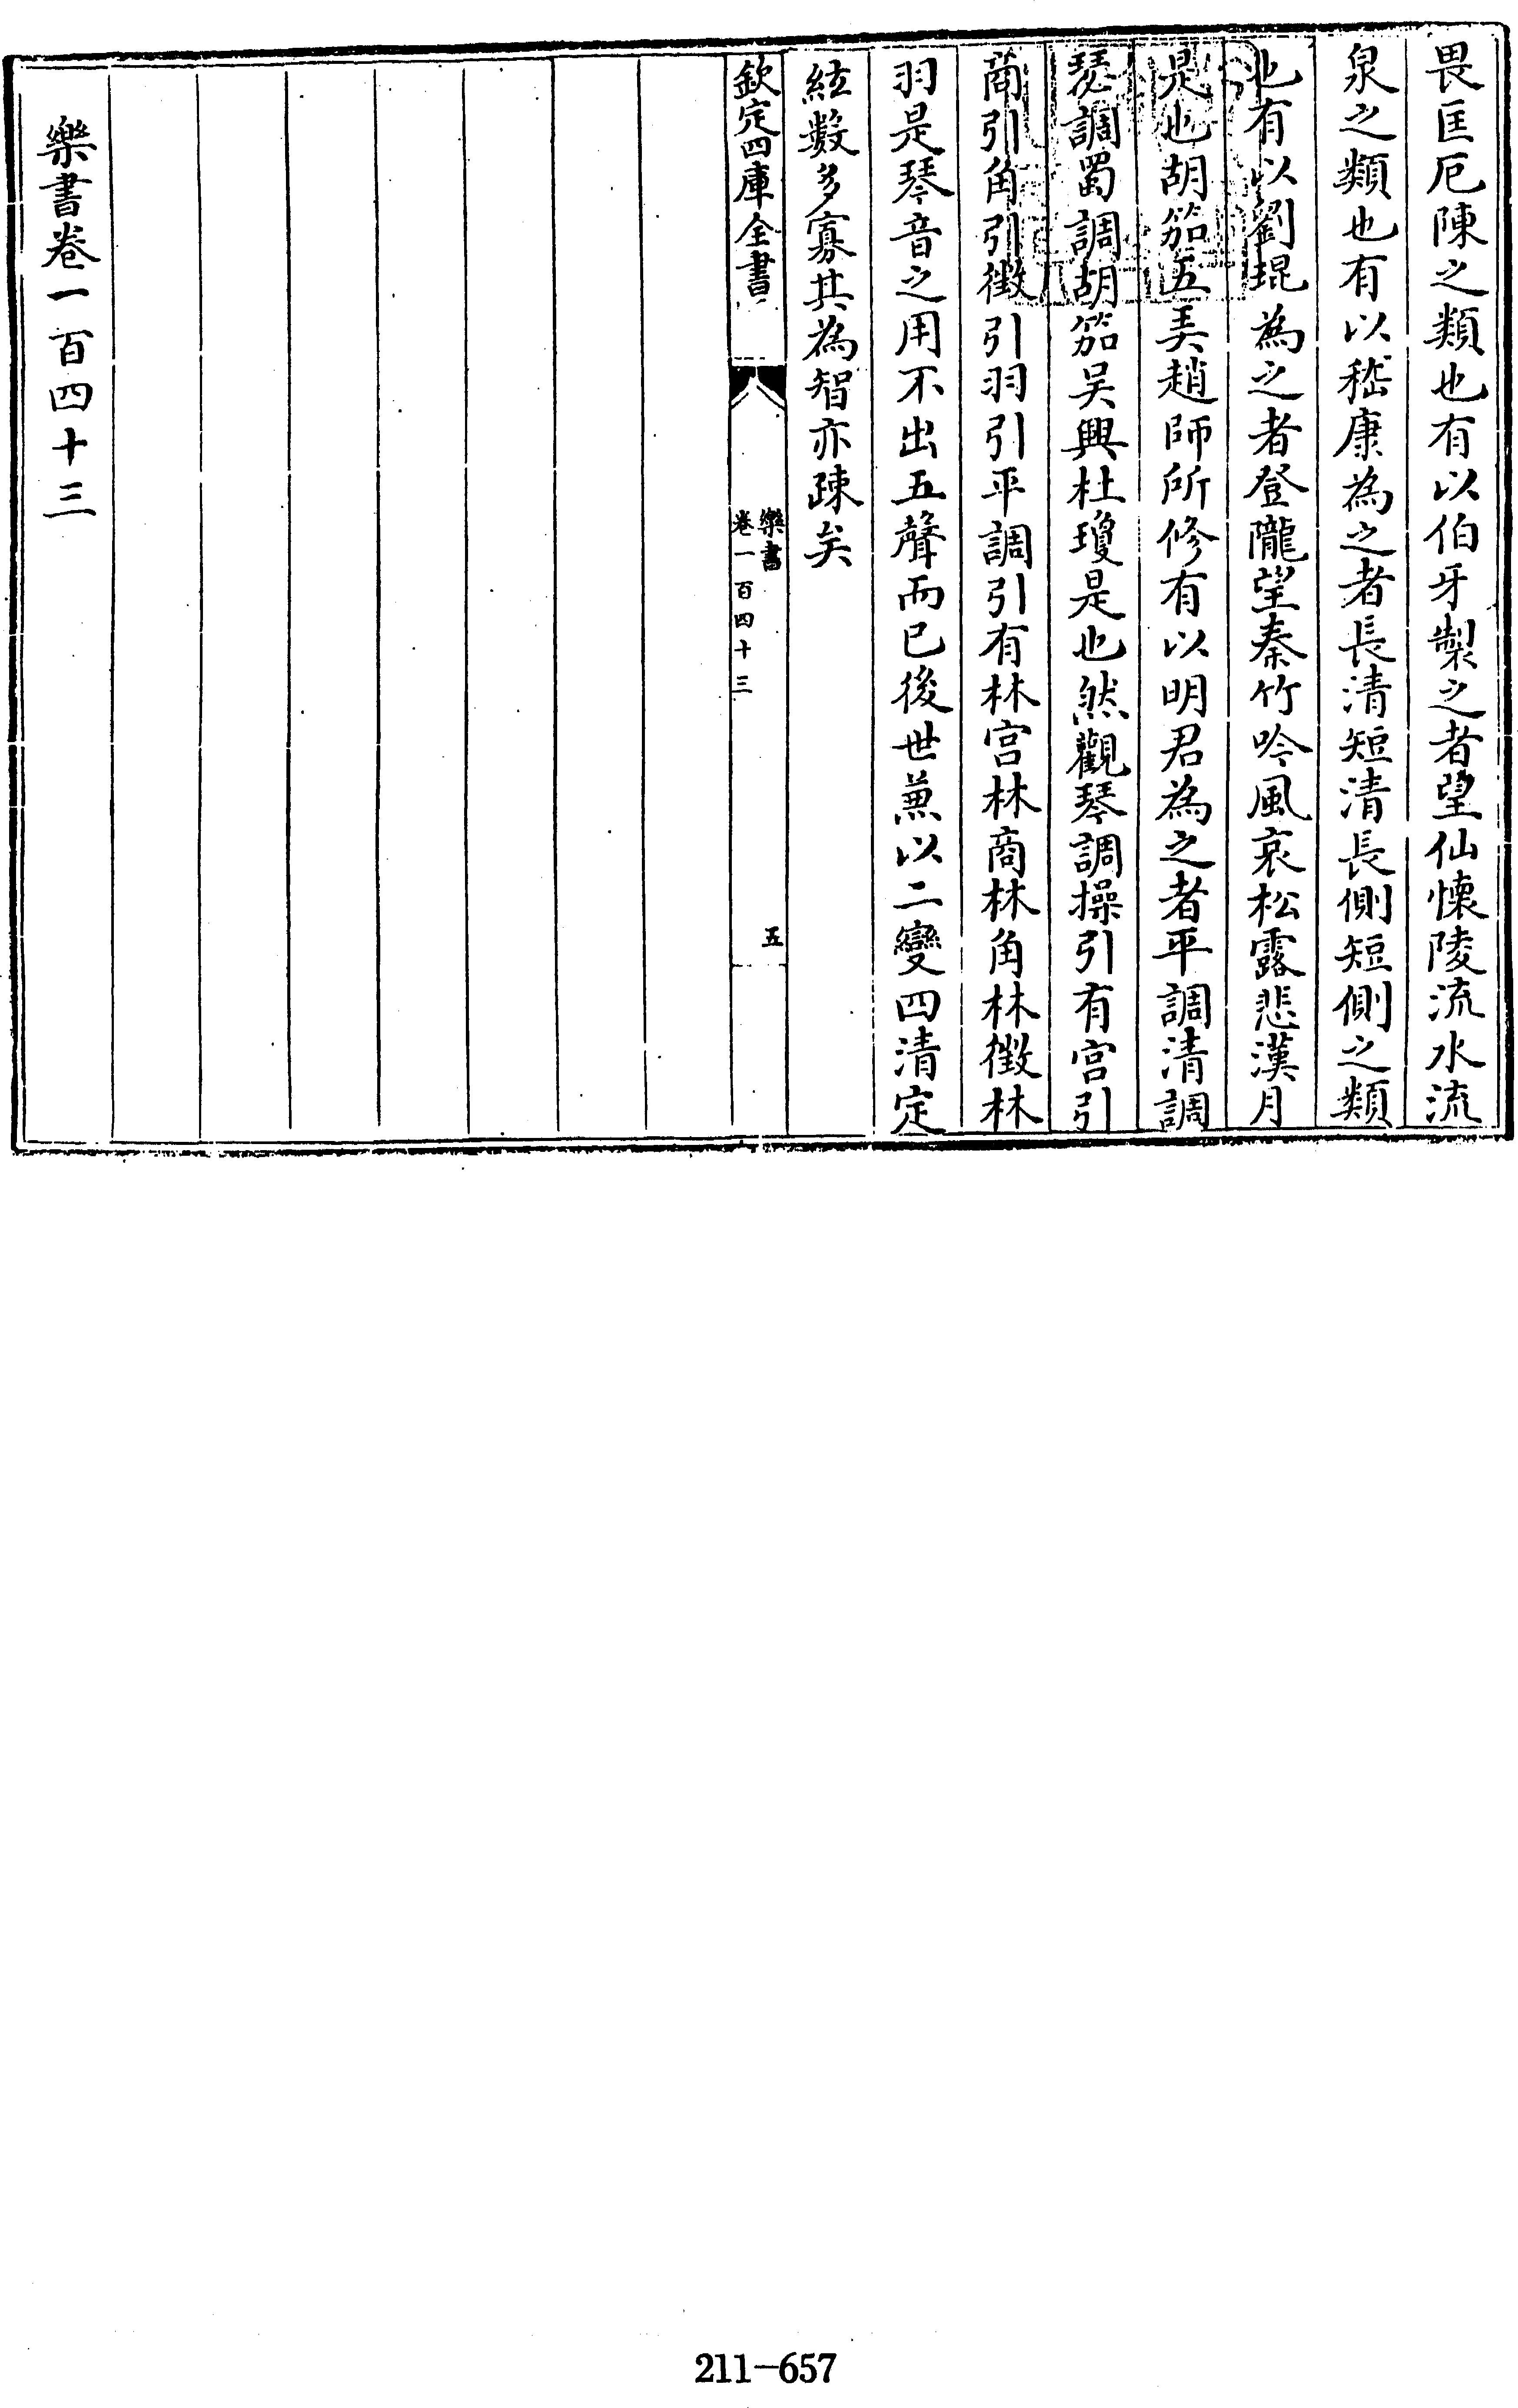 畏匡厄陳之類也有以伯牙製之者望仙懷陵流水流
泉之類也有以嵇康為之者長清短清長側短側之類
也有以劉琨為之者登隴望秦竹吟風哀松露悲漢月
是也胡笳五弄趙師所修有以明君為之者平調清調
瑟調蜀調胡笳吳興杜瓊是也然觀琴調操引有宫引
商引角引徵引羽引平調引有林宫林商林角林徵林
羽是琴音之用不出五聲而已後世兼以二變四清定
絃數多寡其為智亦疎矣
欽定四庫全書
樂書
卷一百四十三
五
樂書卷一百四十三
211-657